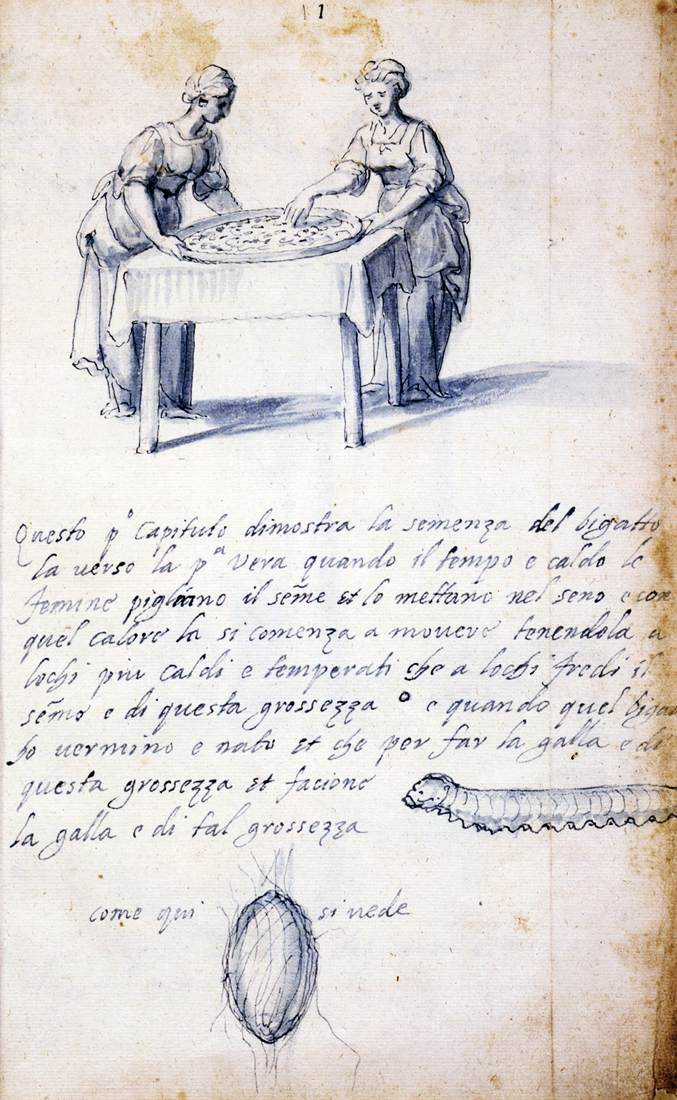 1
Questo p.º Capitulo dimostra la semenza del bigatto
la verso la p.ª vera quando il tempo e caldo le
femine pigliano il seme et lo mettano nel seno e con
quel calore la si comenza a movere tenendola a
lochi piu caldi e temperati che a lochi fredi il
seme e di questa grossezza e quando quel
vermino e nato et che per far la galla e di
questa grossezza et facione
la galla e di tal grossezza
come qui si vede